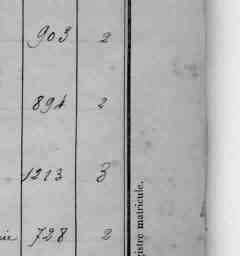 903 2
894 2
1213 3
728 2
istre matricule.